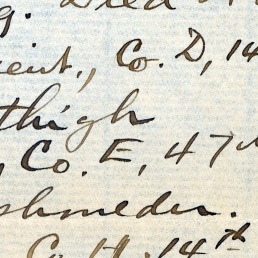 g. Died
ient., Co. D, 14
thigh
, Co. E, 47
shmeder.
Co. H, 14th